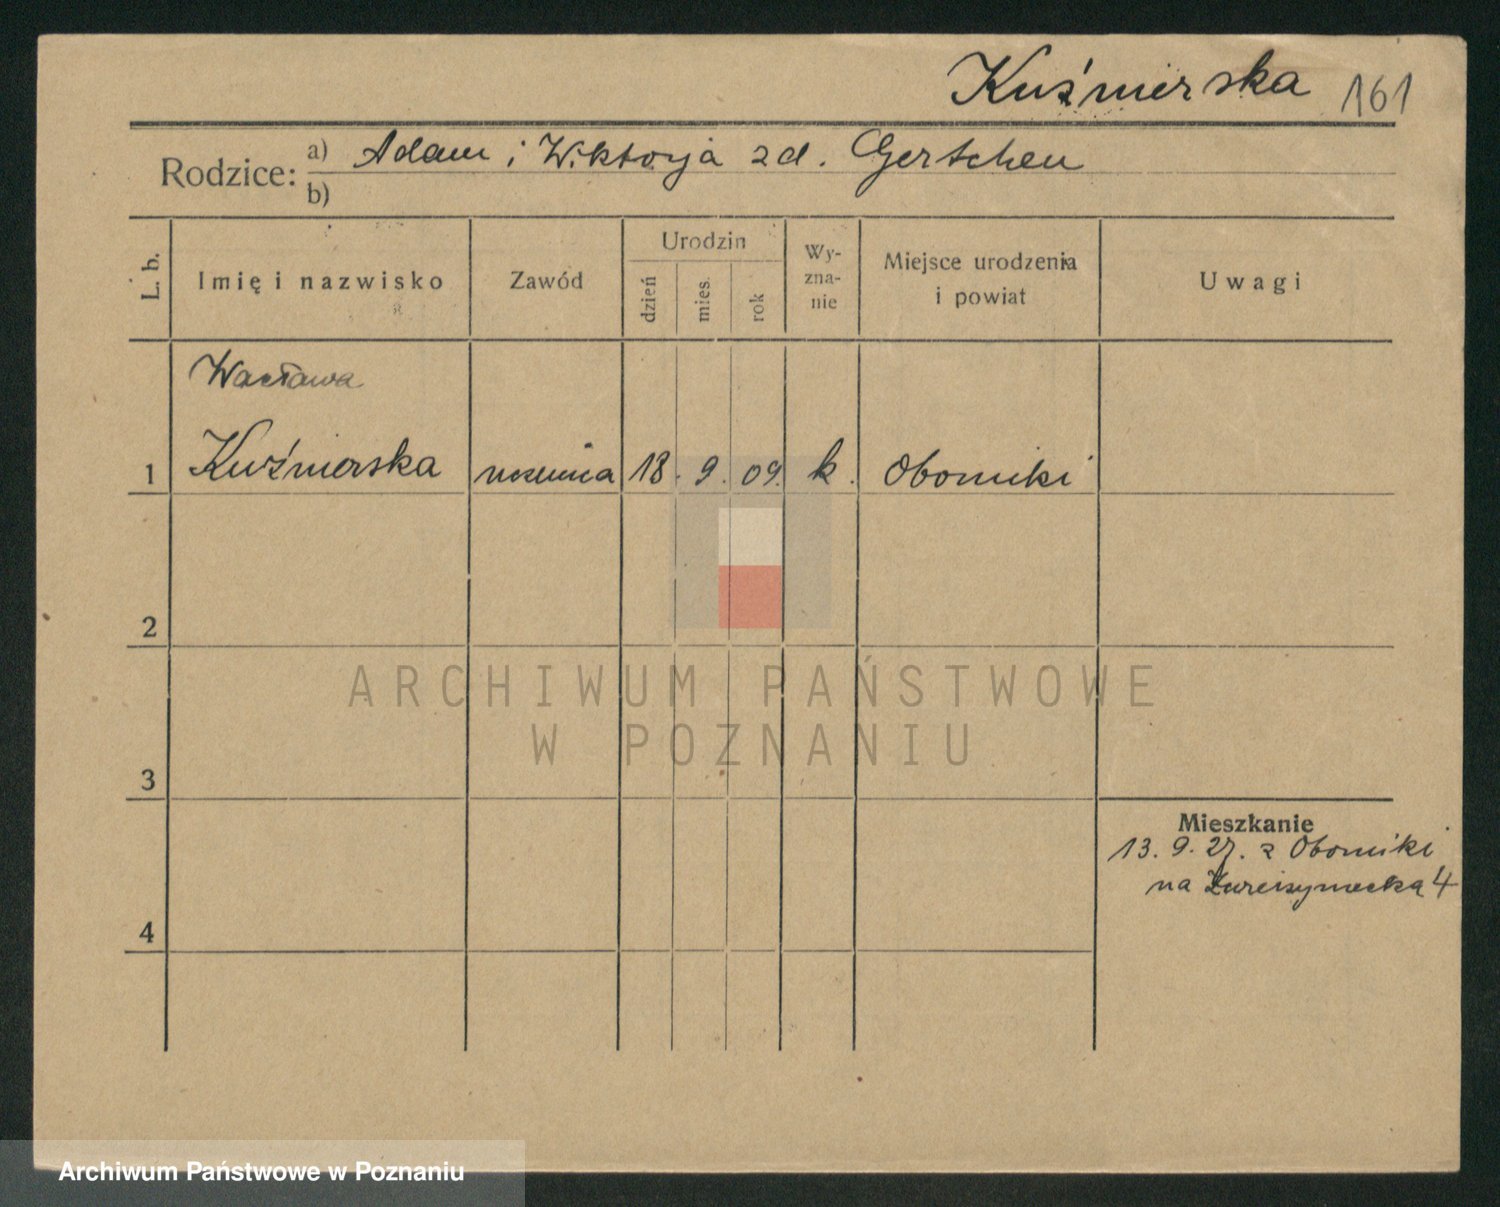 Kuźmierska 161
Rodzice: a) Adam i Wiktorja zd. Gertchen
b)
L. b. Imię i nazwisko Zawód Urodzin dzień mies. rok Wy-zna-nie Miejsce urodzenia i powiat Uwagi
Wacława
1 Kuźmierska uczenica 18. 9. 09. k. Oborniki
2
ARCHIWUM PAŃSTWOWE
W POZNANIU
3
Mieszkanie
13. 9. 27. z Oborniki
na 4
4
Archiwum Państwowe w Poznaniu